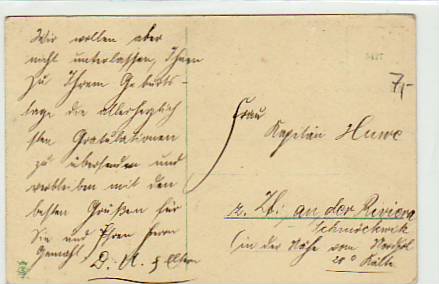 Wir wollen aber
nicht unterlassen, Ihnen
zu Ihrem Geburts-
tage die allerherzlich
sten Gratulationen
zu übersenden und
verbleiben mit den
besten Grüßen für
Sie und Ihren Herrn
Gemahl
D. A. & Eltern
5427
7,-
Frau
Kapitän Huwe
z. Zt. an der Riviera
Schmöckwitz
(in der Nähe vom Nordpol
20° Kälte